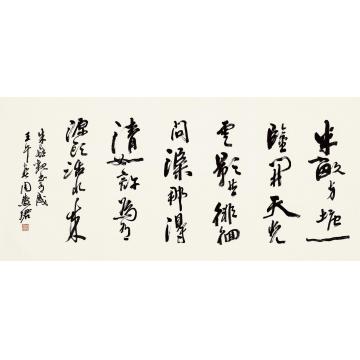 半畝方塘一
鑑開天光
雲影共徘徊
問渠那得
清如許為有
源頭活水來
朱熹觀書有感
壬午 周慧珺